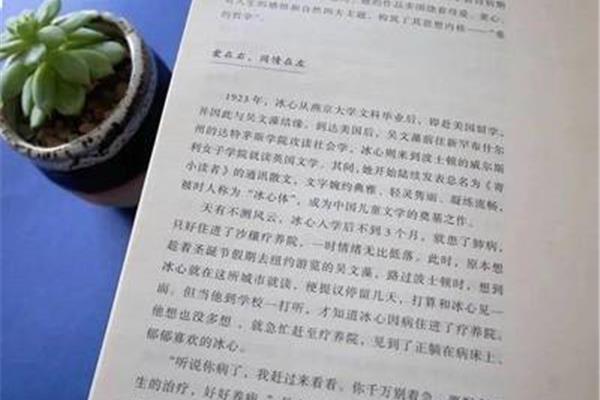 人生的感悟和自然四大主题，构筑了其思想内核——“爱
的哲学”。
爱在右，同情在左
1923年，冰心从燕京大学文科毕业后，即赴美国留学，
并因此与吴文藻结缘。到达美国后，吴文藻前往新罕布什尔
州的达特茅斯学院攻读社会学，冰心则来到波士顿的威尔斯
利女子学院就读英国文学。其间，她开始陆续发表总名为《寄
小读者》的通讯散文，文字婉约典雅、轻灵隽丽、凝练流畅，
被时人称为“冰心体”，成为中国儿童文学的奠基之作。
天有不测风云，冰心入学后不到3个月，就患了肺病，
只好住进了沙穰疗养院，一时情绪无比低落。此时，原本想
趁着圣诞节假期去纽约游览的吴文藻，路过波士顿时，想到
冰心就在这所城市就读，便提议停留几天，打算和冰心见一
面。但当他到学校一打听，才知道冰心因病住进了疗养院。
他想也没多想，就急忙赶至疗养院，见到了正躺在病床上、
郁郁寡欢的冰心。
“听说你病了，我赶过来看看。你千万别着急，要配合
生的治疗，好好养病。”